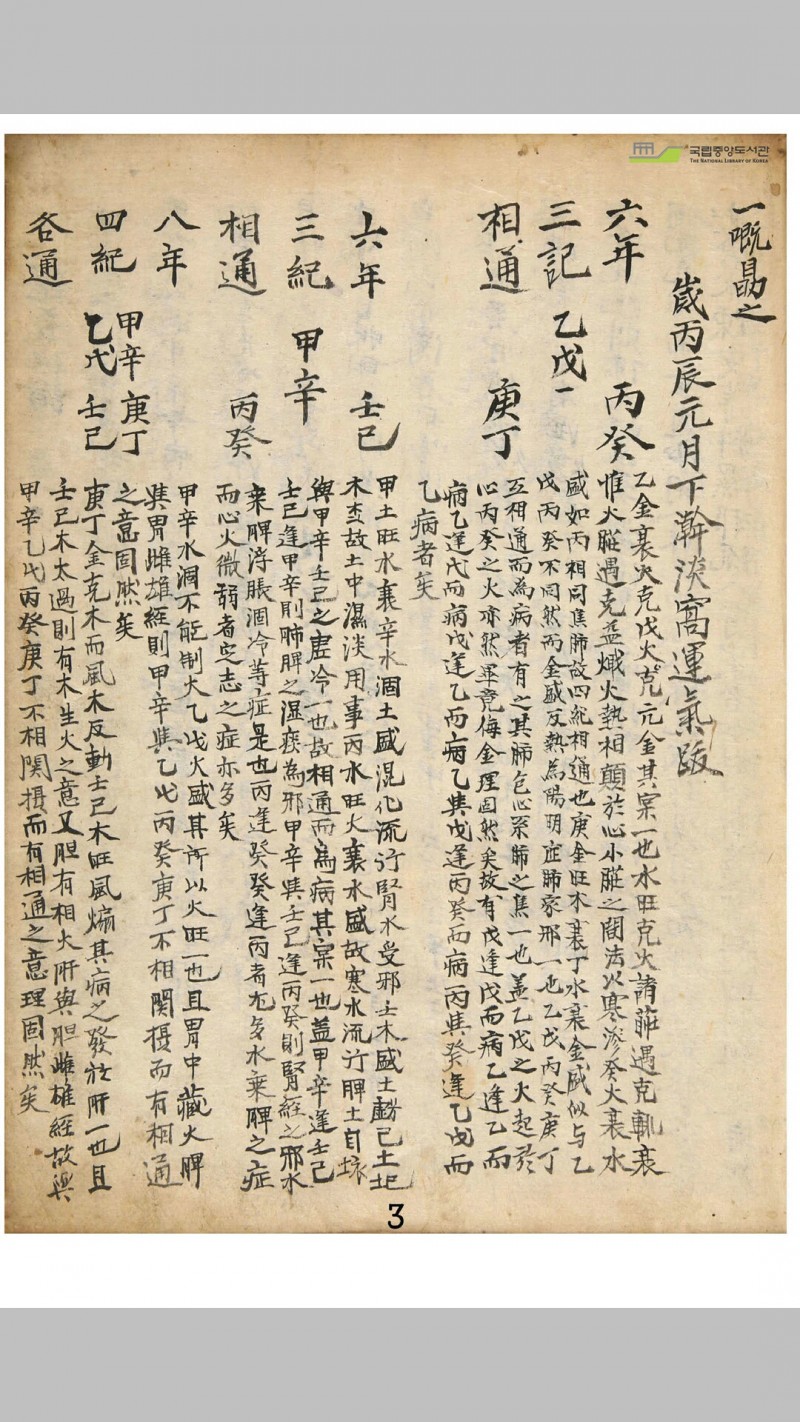 국립중앙도서관
THE NATIONAL LIBRARY OF KOREA
一嘅勗之
歲丙辰元月下澣淡窩運氣跋
六年 丙癸
三記 乙戊一
相通 庚丁
乙金衰火克戊火克元金其案一也水旺克火諸莊遇克輒衰
惟火莊遇克益熾火熱相顛於心小莊之間法以寒滲癸火衰水
盛如丙相同焦肺故四紀相通也庚金旺木衰丁水衰金盛似与乙
戊丙癸不同然而金盛反熱為陽明症肺家邪一也乙戊丙癸庚丁
互相通而為病者有之其肺包心系肺之焦一也盖乙戊之火起於
心丙癸之火亦然畢竟侮金理固然矣故有戊逢戊而病乙逢乙而
病乙逢戊而病戊逢乙而病乙與戊逢丙癸而病丙與癸逢乙戊而
乙病者矣
六年 壬己
三紀 甲辛
相通 丙癸
甲土旺水衰辛水涸土盛混化流行腎水受邪壬木盛土虧己土圮
木克故土中濕淡用事丙水旺火衰水盛故寒水流行脾土自壞
與甲辛壬己之虛冷一也故相通而為病其案一也盖甲辛逢壬己
壬己逢甲辛則肺脾之濕痰為邪甲辛與壬己逢丙癸則腎經之邪水
乘脾浮脹涸冷等症是也丙逢癸癸逢丙者尤多水乘脾之症
而心火微弱者乏志之症亦多矣
八年 甲辛 庚丁
四紀 乙戊 壬己
各通
甲辛水涸不能制火乙戊火盛其所以火旺一也且胃中藏火脾
與胃雌雄經則甲辛與乙戊丙癸庚丁不相關摄而有相通
之意固然矣
庚丁金克木而風木反動壬己木旺風煽其病之發於肝一也且
壬己木太過則有木生火之意又胆有相火肝與胆雌雄經故與
甲辛乙戊丙癸庚丁不相関摄而有相通之意理固然矣
3